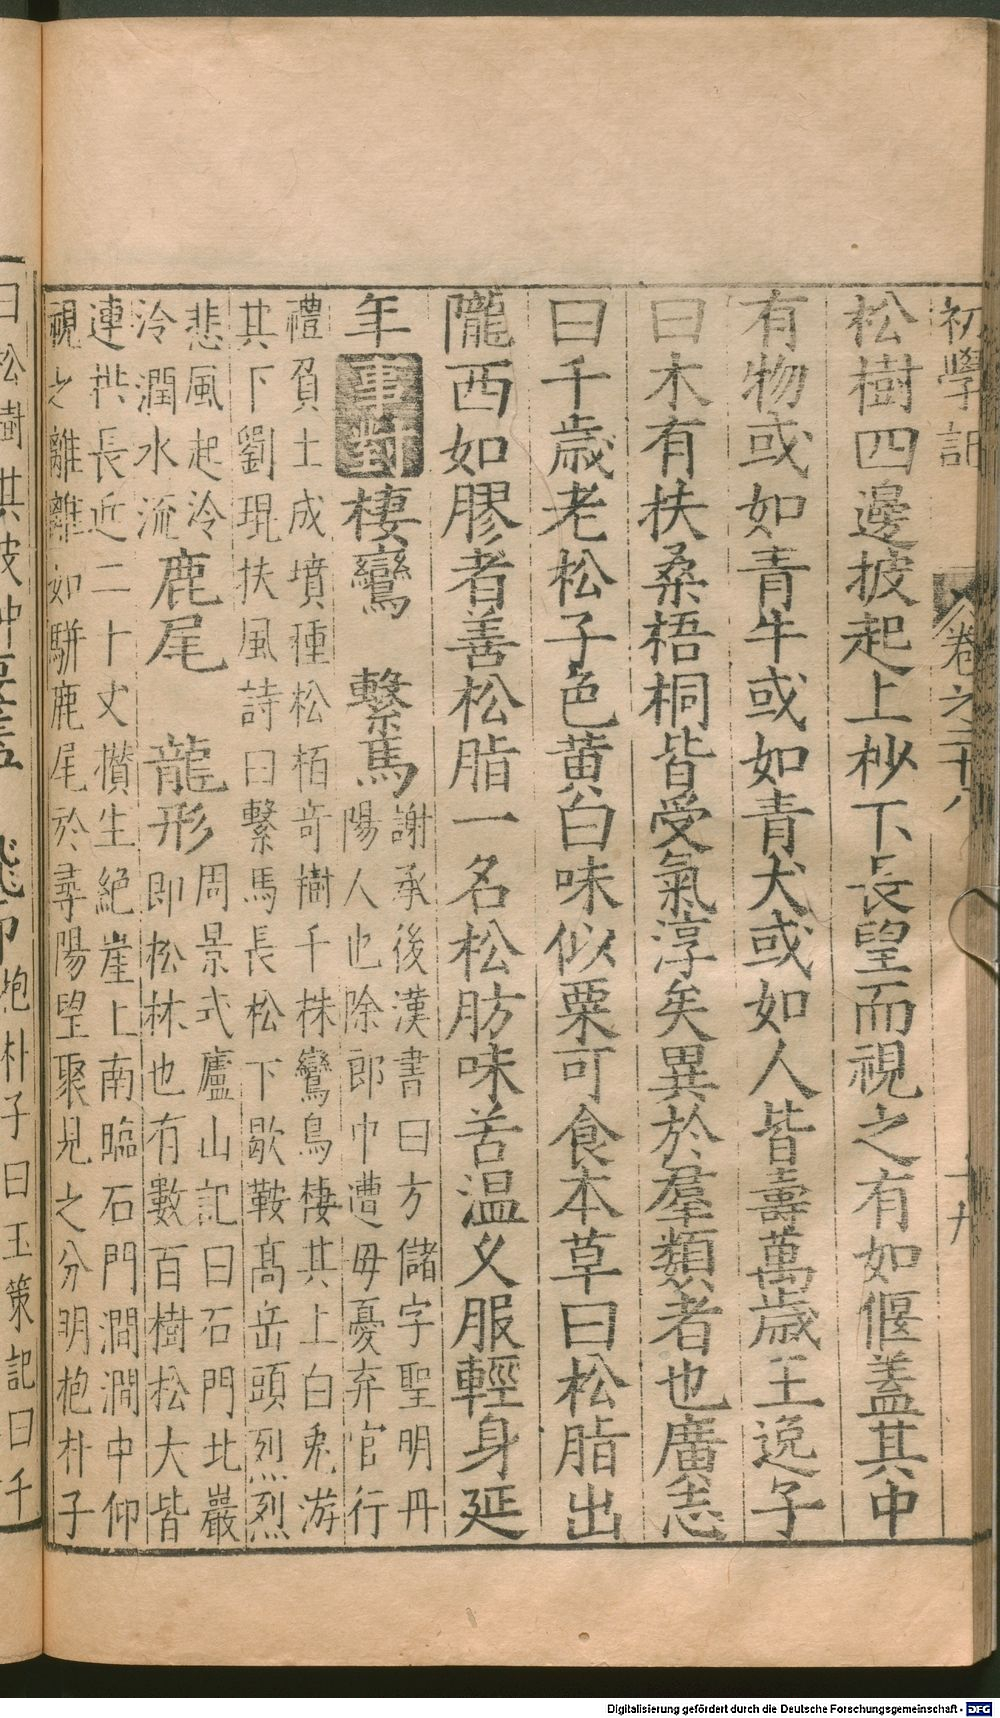 初學記 卷之二十八 十九
松樹四邊披起上杪下長望而視之有如偃蓋其中
有物或如青牛或如青犬或如人皆壽萬歲王逸子
曰木有扶桑梧桐皆受氣淳矣異於羣類者也廣志
曰千歲老松子色黃白味似粟可食本草曰松脂出
隴西如膠者善松脂一名松肪味苦温乂服輕身延
年 事對 棲鸞 繫馬
謝承後漢書曰方儲字聖明丹
陽人也除郎中遭毋憂弃官行
禮負土成墳種松栢竒樹千株鸞鳥棲其上白兎游
其下劉琨扶風詩曰繫馬長松下歇鞍高岳頭烈烈
悲風起泠
泠潤水流
鹿尾 龍形
周景式廬山記曰石門北巖
即松林也有數百樹松大皆
連拱長近二十丈攢生絕崖上南臨石門澗澗中仰
視之離離如駢鹿尾於尋陽望聚見之分明抱朴子
抱朴子曰玉策記曰千
曰松樹其
Digitalisierung gefördert durch die Deutsche Forschungsgemeinschaft - DFG